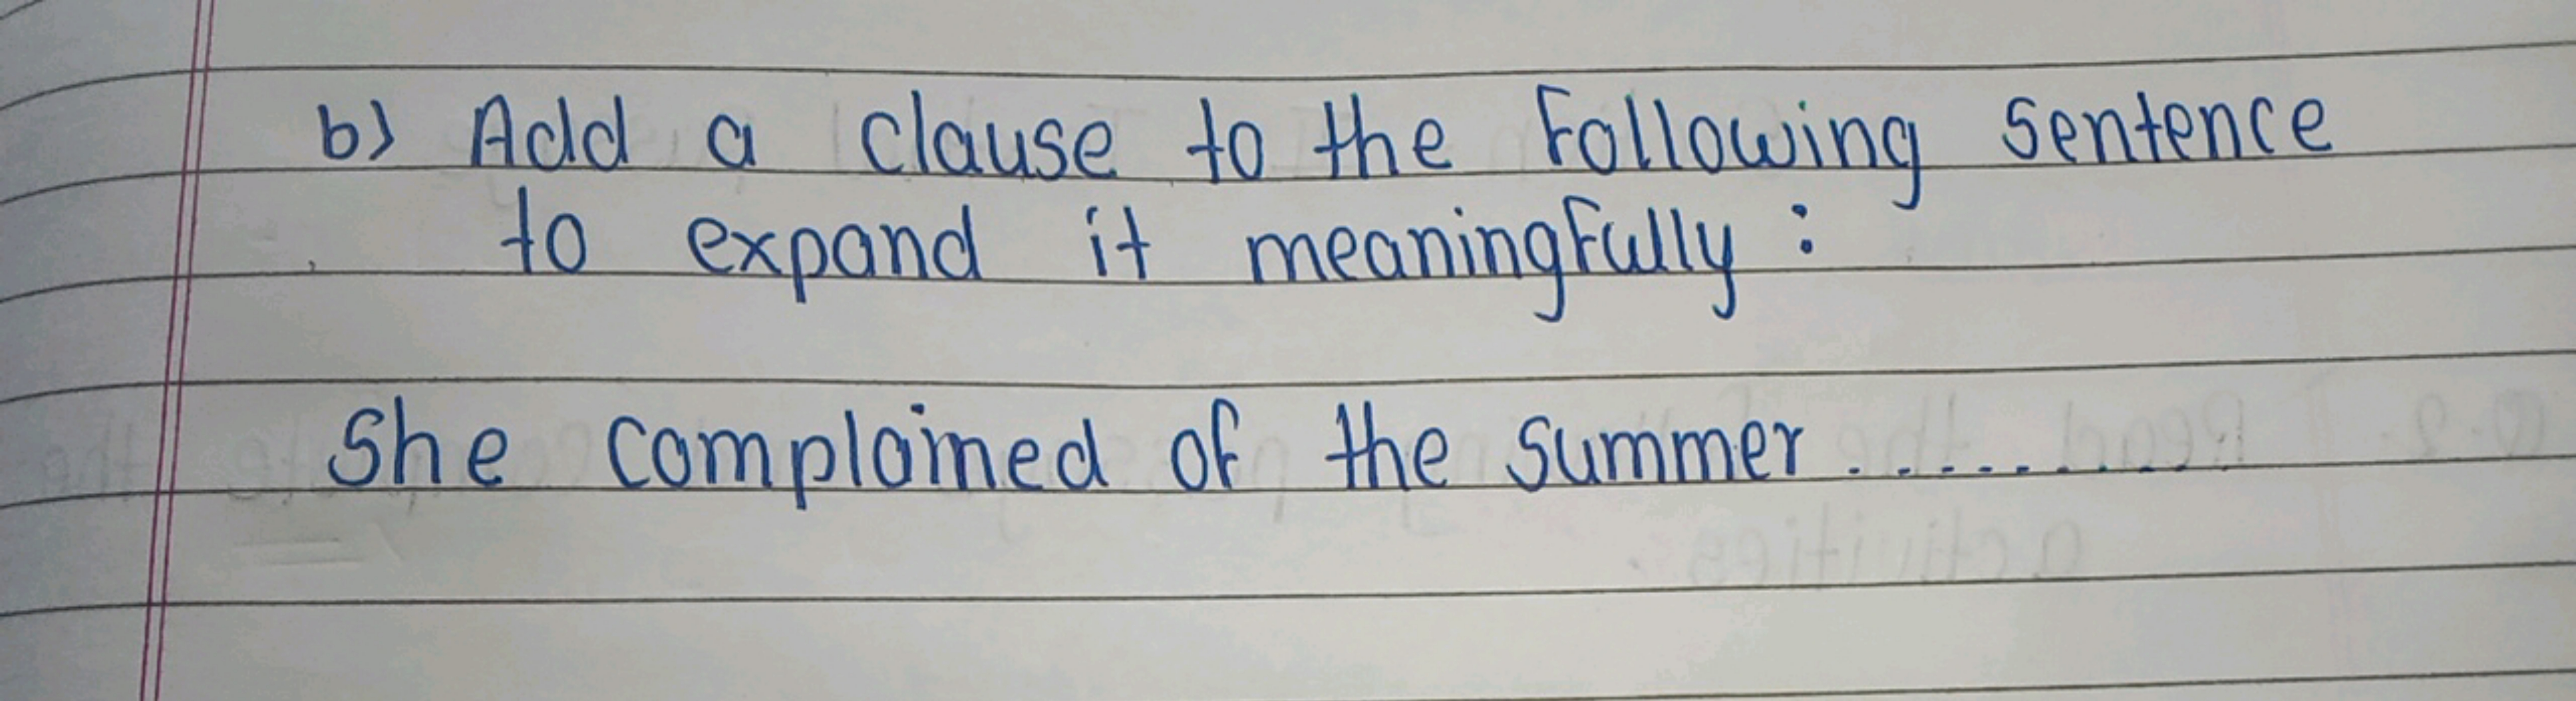 b) Add a clause to the following sentence
to expand it meaningfully :
She complained of the summer..........